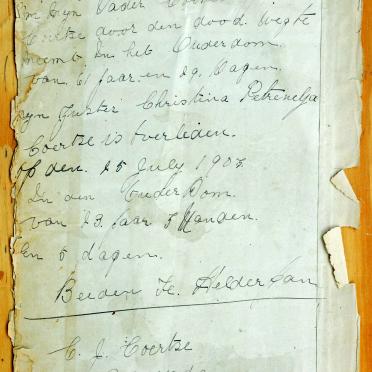 Mijn Vader
Coertse door den dood. Weg te
neemt. In het Ouderdom.
van. 61 Jaar en 29. Dagen.
Myn Zuster Christina Petronella
Coertse is Overleden.
Op den. 25 July 1903.
In den Ouder Dom.
van 23. Jaar 5 Manden.
En 5 dagen.
Beiden Te. Helderfan
C. J. Coertse